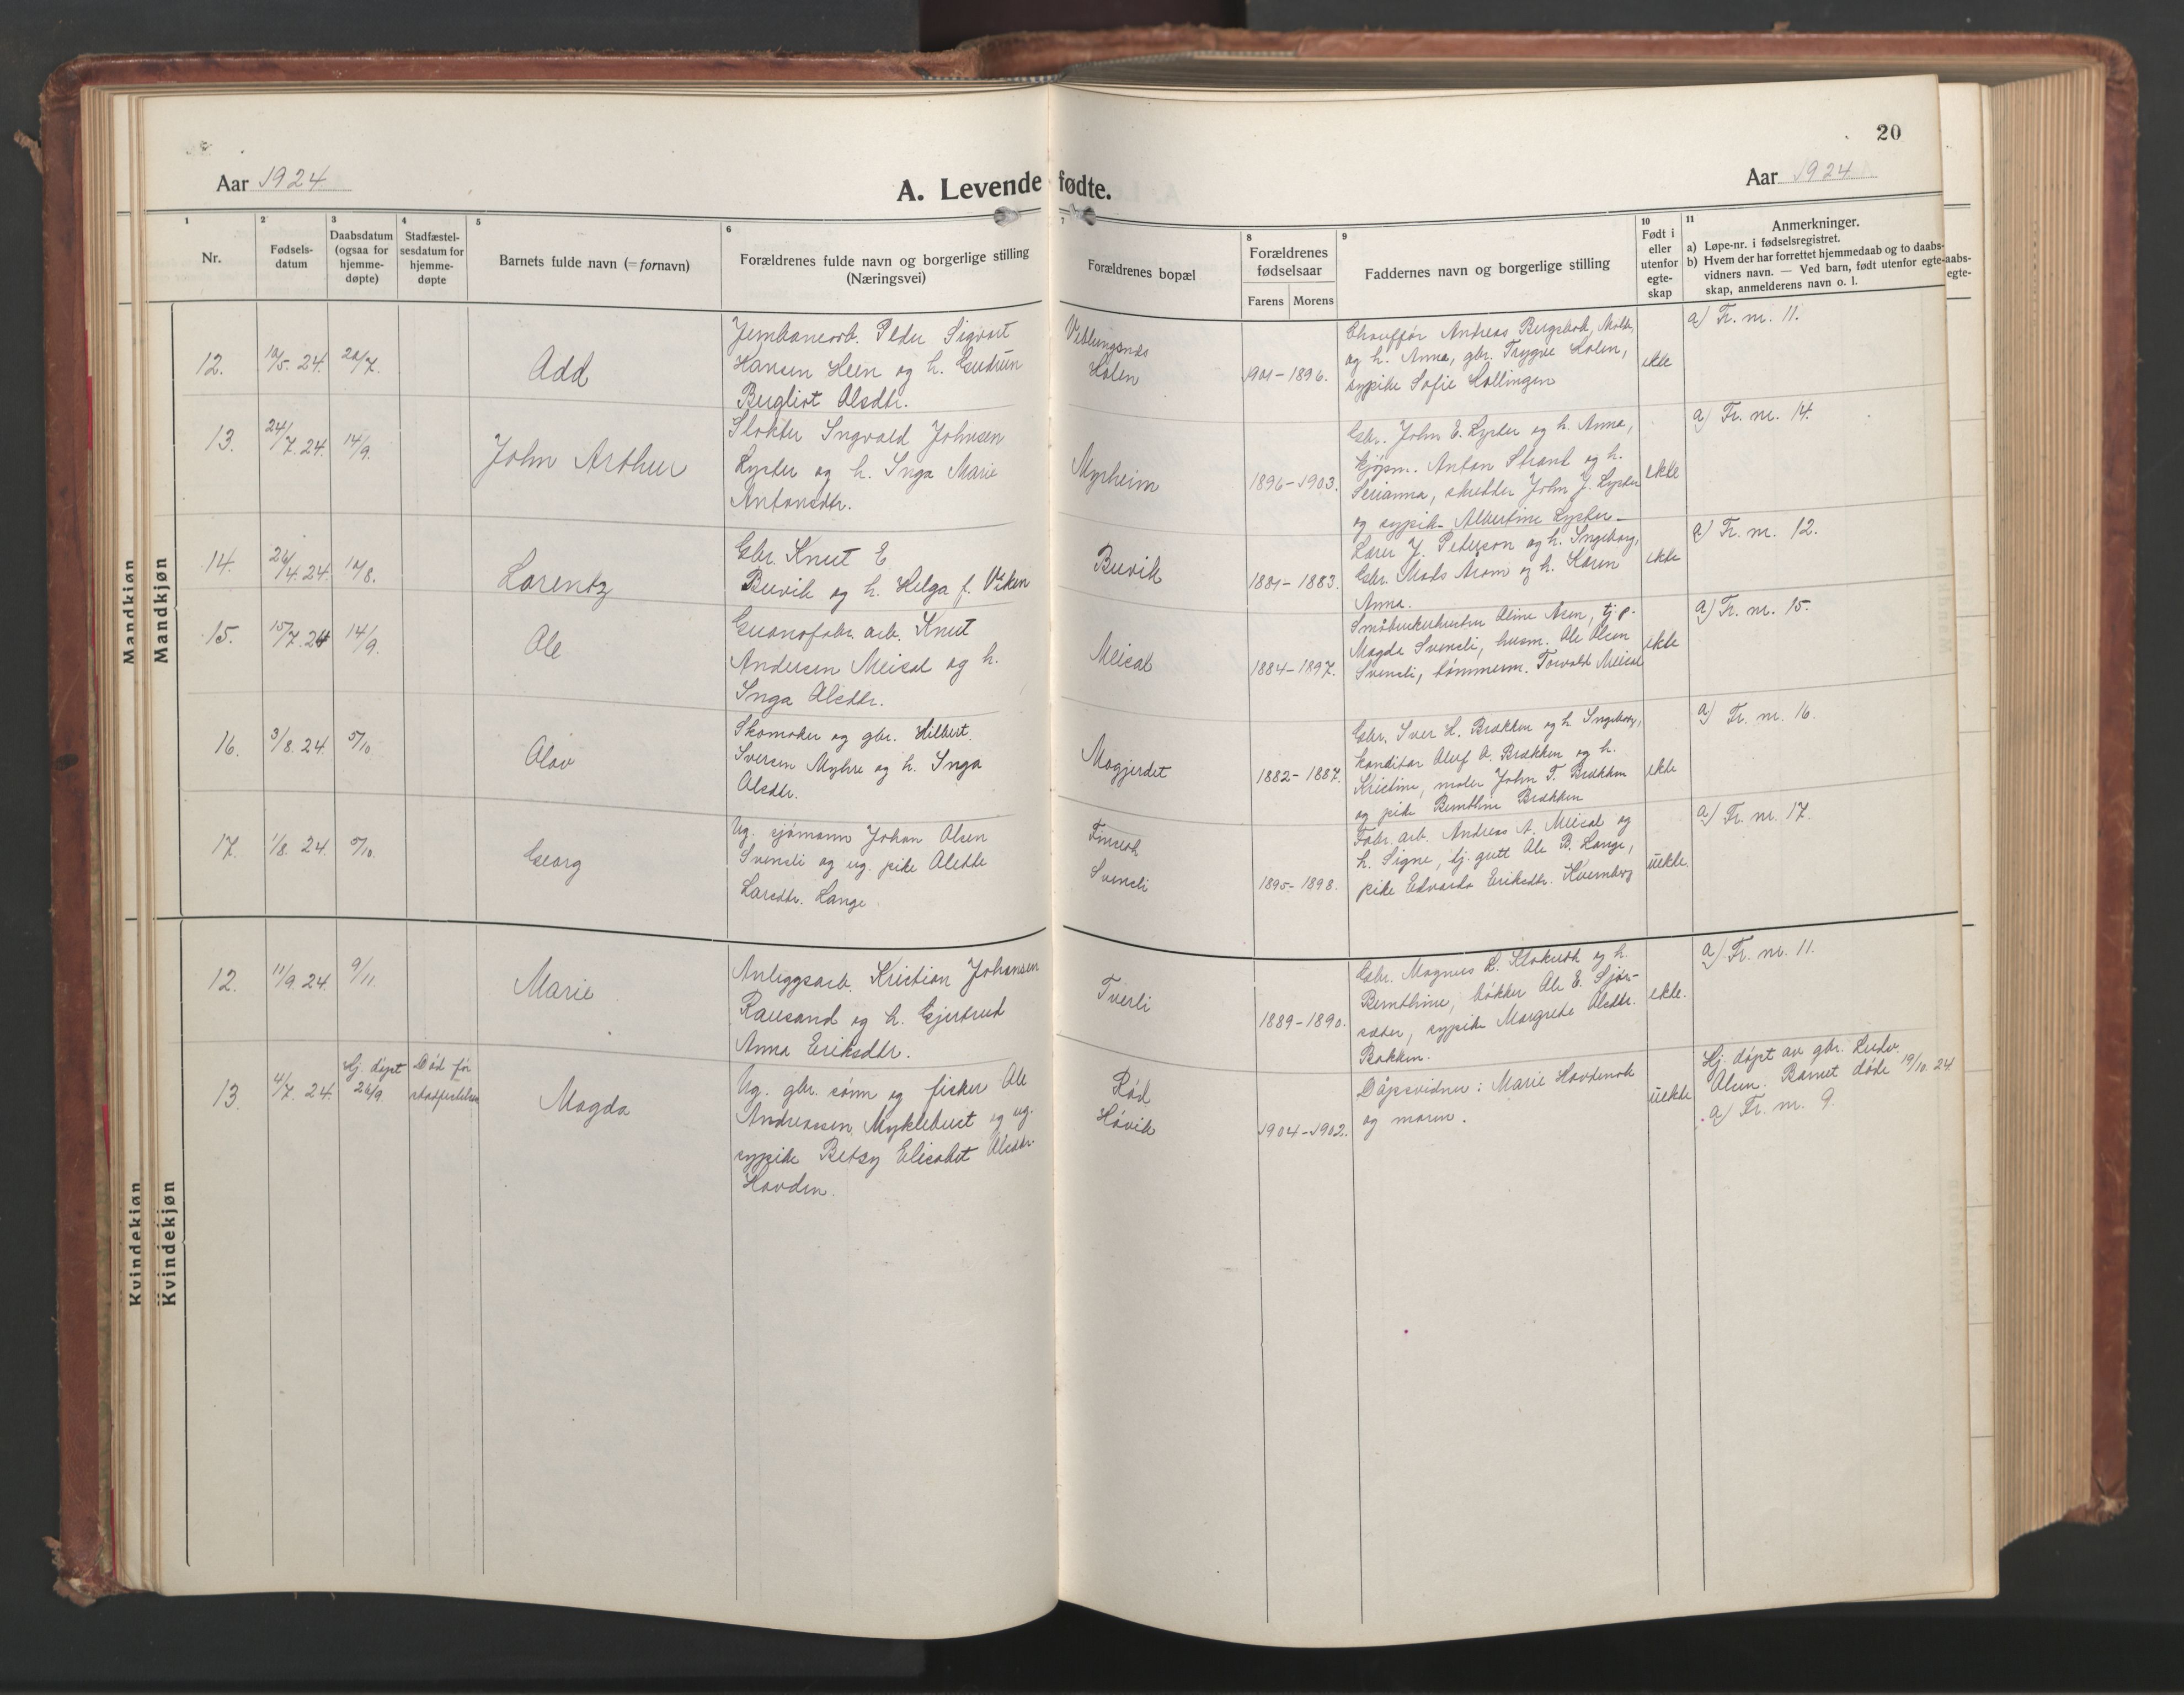 20
Aar 1924
A. Levende fødte.
Aar 1924
1
2
3
4
5
6
7
8
9
10
11
Nr.
Fødsels-
datum
Daabsdatum
(ogsaa for
hjemme-
døpte)
Stadfæstel-
sesdatum for
hjemme-
døpte
Barnets fulde navn (= fornavn)
Forældrenes fulde navn og borgerlige stilling
(Næringsvei)
Forældrenes bopæl
Forældrenes
fødselsaar
Farens Morens
Faddernes navn og borgerlige stilling
Født i
eller
utenfor
egte-
skap
Anmerkninger.
a) Løpe-nr. i fødselsregistret.
b) Hvem der har forrettet hjemmedaab og to daabs-
vidners navn. — Ved barn, født utenfor egte-
skap, anmelderens navn o. l.
aabs-
egte-
Mandkjøn
Mandkjøn
12. 10/5. 24. 20/7. Odd
Jernbanearb. Peder Sigvart
Hansen Heen og h. Gudrun
Bergliot Olsdtr.
Veblungsnes
Holen
1901-1896.
Chauffør Andreas Bergsbak, Molde,
og h. Anna, gbr. Trygve Holen,
sypike Sofie Kollingen
ekte
a) Fr. nr. 11.
13. 24/7. 24. 14/9. John Arthur
Slakter Ingvald Johnsen
Lyster og h. Inga Marie
Antonsdtr.
Myrheim
1896-1903.
Gbr. John E. Lyster og h. Anna,
kjøpm. Anton Strand og h.
Serianna, skredder John J. Lyster
og sypik- Albertine Lyster-
ekte
a) Fr. nr. 14.
14. 26/4. 24. 17/8. Lorentz
Gbr. Knut E.
Buvik og h. Helga f. Viken
Buvik
1881-1883.
Lærer J. Peterson og h. Ingeborg,
Gbr. Mads Aram og h. Karen
Anna.
ekte
a) Fr. nr. 12.
15. 15/7. 24 14/9. Ole
Guanofabr. arb. Knut
Andersen Meisal og h.
Inga Olsdtr.
Meisal
1884-1897.
Småbrukerhustru Oline Aasen, tj. p.
Magda Svensli, husm. Ole Olsen
Svensli, tømmerm. Torvald Meisal
ekte
a) Fr. nr. 15.
16. 3/8. 24. 5/10 Olav
Skomaker og gbr. Hilbert
Iversen Myhre og h. Inga
Olsdtr.
Mogjerdet
1882-1887.
Gbr. Iver H. Brækken og h. Ingeborg,
konditor Oluf O. Brækken og h.
Kristine, maler John T. Brækken
og pike Bernthine Brækken
ekte
a) Fr. nr. 16.
17. 1/8. 24. 5/10. Georg
Ug. sjømann Johan Olsen
Svensli og ug. pike Alette
Larsdtr. Lange
Finseth
Svensli
1895-1898.
Fabr. arb. Andreas A. Meisal og
h. Signe, tj. gutt Ole B. Lange,
pike Edvarda Eriksdtr. Kvernberg
uekte.
a) Fr. nr. 17.
Kvindekjøn
Kvindekjøn
12. 11/9. 24. 9/11. Marie
Anleggsarb. Kristian Johansen
Rausand og h. Gjertrud
Anna Eriksdtr.
Tverli
1889-1890.
Gbr. Magnus L. Klokseth og h.
Bernthine, bøkker Ole E. Sjør-
sæter, sypike Margrete Olsdtr.
Bakken.
ekte.
a) Fr. nr. 11.
13. 4/7. 24. Hj. døpt
26/9.
Død før
stadfestelsen
Magda
Ug. gbr. sønn og fisker Ole
Andreassen Myklebust og ug.
sypike Betsy Elisabet Olsdtr.
Hovden.
Rød
Høvik
1904-1902.
Dåpsvidner: Marie Hovdenak
og moren.
uekte
Hj. døpt av gbr. Ludv.
Olsen. Barnet døde 19/10. 24
a) Fr. nr. 9.